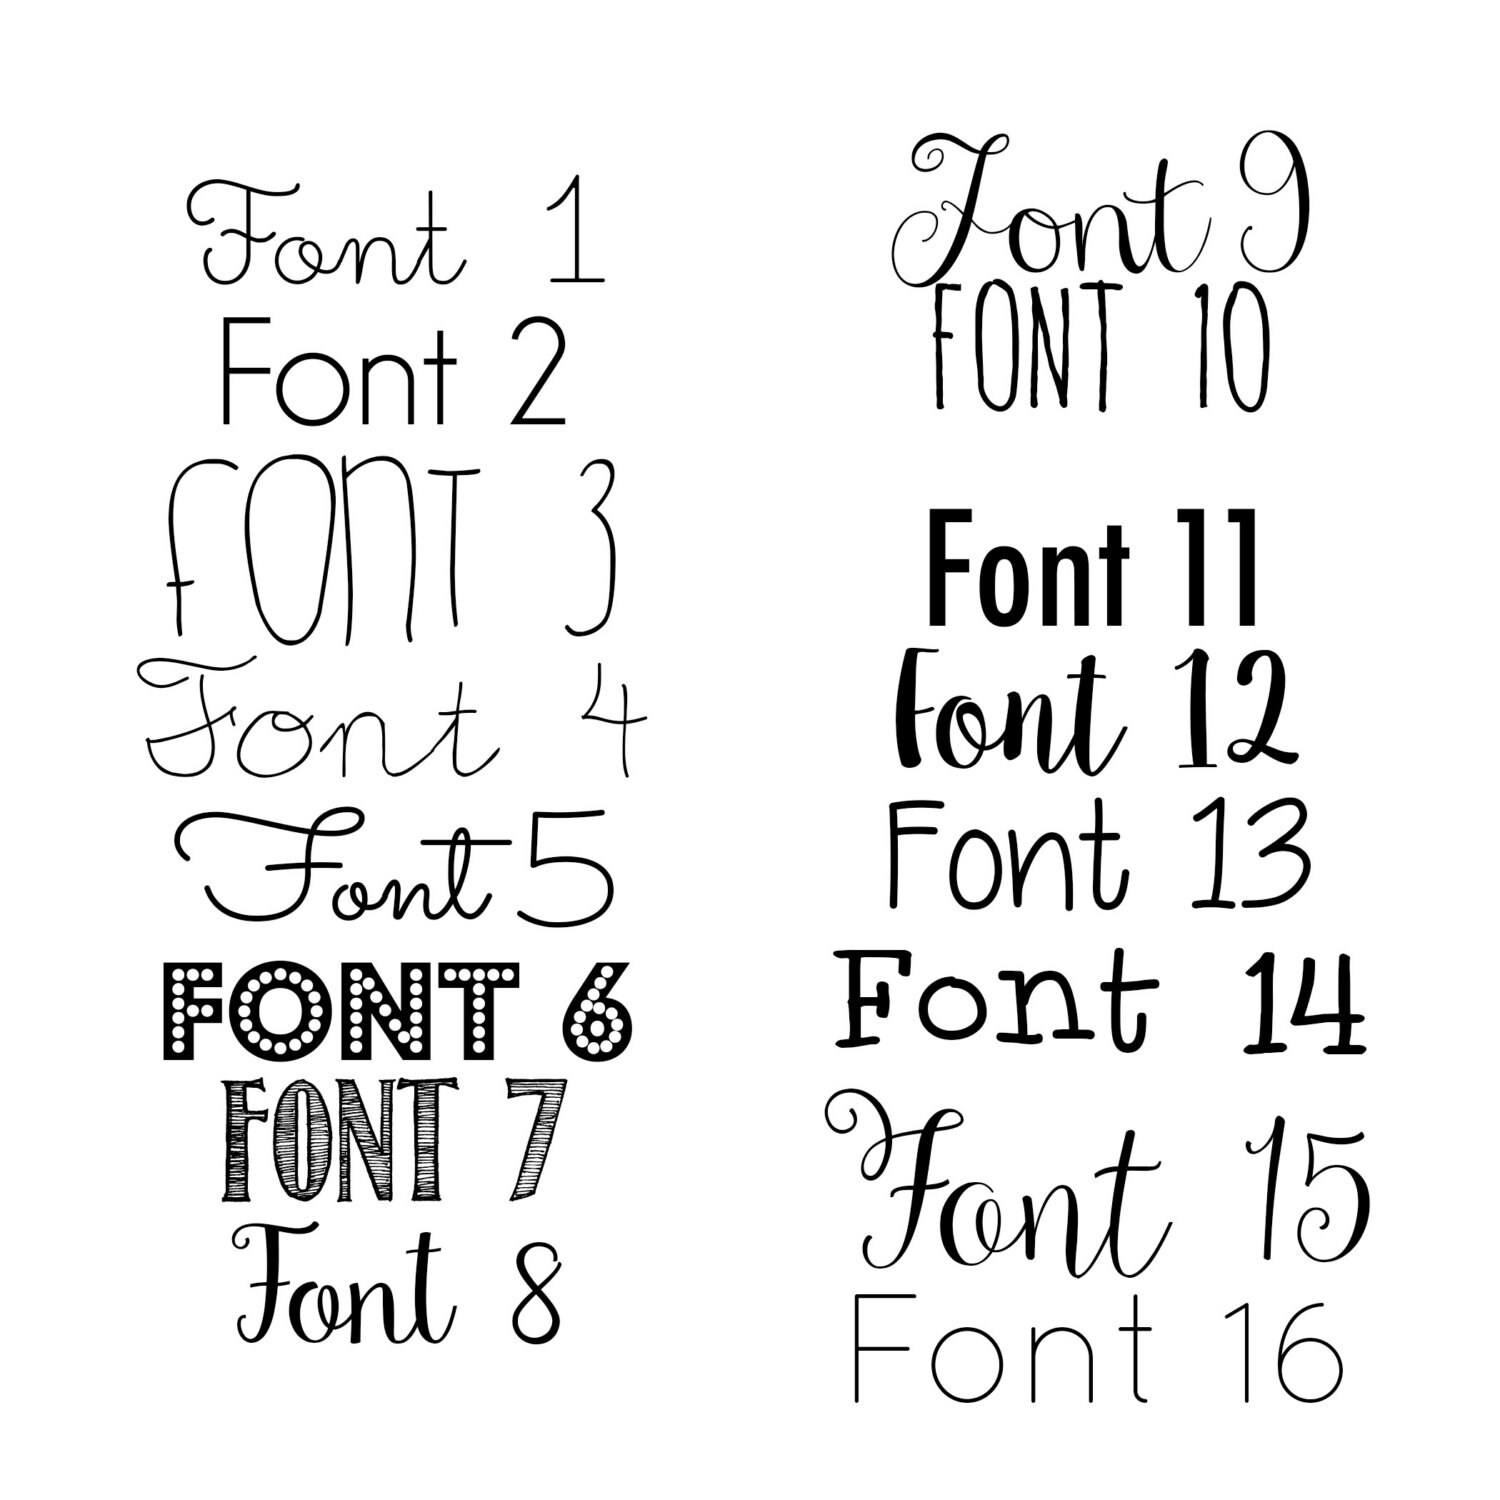 Font 1
Font 2
FONT 3
Font 4
Font 5
FONT 6
FONT 7
Font 8
Font 9
FONT 10
Font 11
Font 12
Font 13
Font 14
Font 15
Font 16